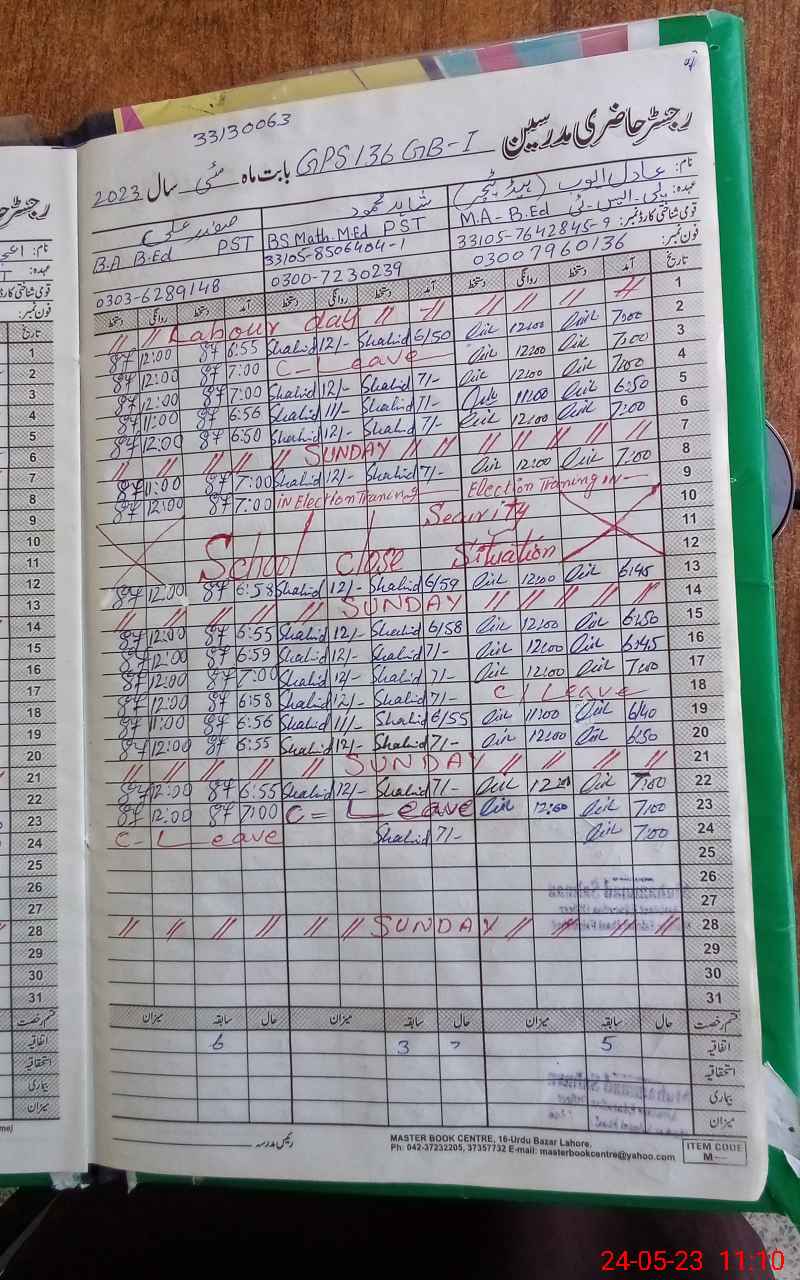 33130063
رجسٹر حاضری مدرسین GPS 136 GB-I بابت ماہ مئی سال 2023
نام: عادل ایوب (ہیڈ ٹیچر) شاہد محمود صفدر علی
عہدہ: پی-ایس-ٹی M.A - B.Ed BS Math. M.Ed PST B.A B.Ed PST
قومی شناختی کارڈ نمبر: 33105-7642845-9 33105-8506404-1
فون نمبر: 03007960136 0300-7230239 0303-6289148
تاریخ آمد دستخط روانگی دستخط آمد دستخط روانگی دستخط آمد دستخط روانگی دستخط
1 Labour day
2 7:00 12:00 6/50 Shahid 12/- Shahid 6:55 12:00
3 7:00 12:00 C - Leave 7:00 12:00
4 7:00 12:00 7/- Shahid 12/- Shahid 7:00 12:00
5 6:50 11:00 7/- Shahid 11/- Shahid 6:56 11:00
6 7:00 12:00 7/- Shahid 12/- Shahid 6:50 12:00
7 SUNDAY
8 7:00 12:00 7/- Shahid 12/- Shahid 7:00 11:00
9 Election Training IN IN Election Training 7:00 12:00
10 Security
11 School close Situation
12
13 6:45 12:00 6/59 Shahid 12/- Shahid 6:58 12:00
14 SUNDAY
15 6:50 12:00 6/58 Shahid 12/- Shahid 6:55 12:00
16 6:45 12:00 7/- Shahid 12/- Shahid 6:59 12:00
17 7:00 12:00 7/- Shahid 12/- Shahid 7:00 12:00
18 C/ Leave 7/- Shahid 12/- Shahid 6:58 12:00
19 6/40 11:00 6/55 Shahid 11/- Shahid 6:56 11:00
20 6:50 12:00 7/- Shahid 12/- Shahid 6:55 12:00
21 SUNDAY
22 7:00 12:00 7/- Shahid 12/- Shahid 6:55 12:00
23 7:00 12:00 C = Leave 7:00 12:00
24 7:00 7/- Shahid C - Leave
25
26
27
28 SUNDAY
29
30
31
قسم رخصت حال سابقہ میزان حال سابقہ میزان حال سابقہ میزان
اتفاقیہ 5 3 6
استحقاقیہ
بیماری
میزان
رئیس مدرسہ
MASTER BOOK CENTRE, 16-Urdu Bazar Lahore.
Ph: 042-37232205, 37357732 E-mail: masterbookcentre@yahoo.com
ITEM CODE
M—
رجسٹر
نام:
عہدہ:
قومی شناختی کارڈ
فون نمبر:
تاریخ
1
2
3
4
5
6
7
8
9
10
11
12
13
14
15
16
17
18
19
20
21
22
23
24
25
26
27
28
29
30
31
قسم رخصت
اتفاقیہ
استحقاقیہ
بیماری
میزان
24-05-23 11:10